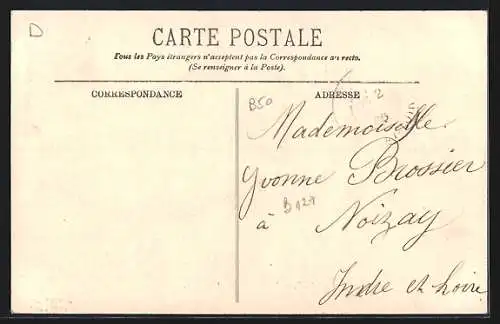 D
CARTE POSTALE
Tous les Pays étrangers n'acceptent pas la Correspondance au recto.
(Se renseigner à la Poste).
CORRESPONDANCE
B50
ADRESSE
Mademoiselle
Yvonne Brossier
B124
à Noizay
Indre et Loire